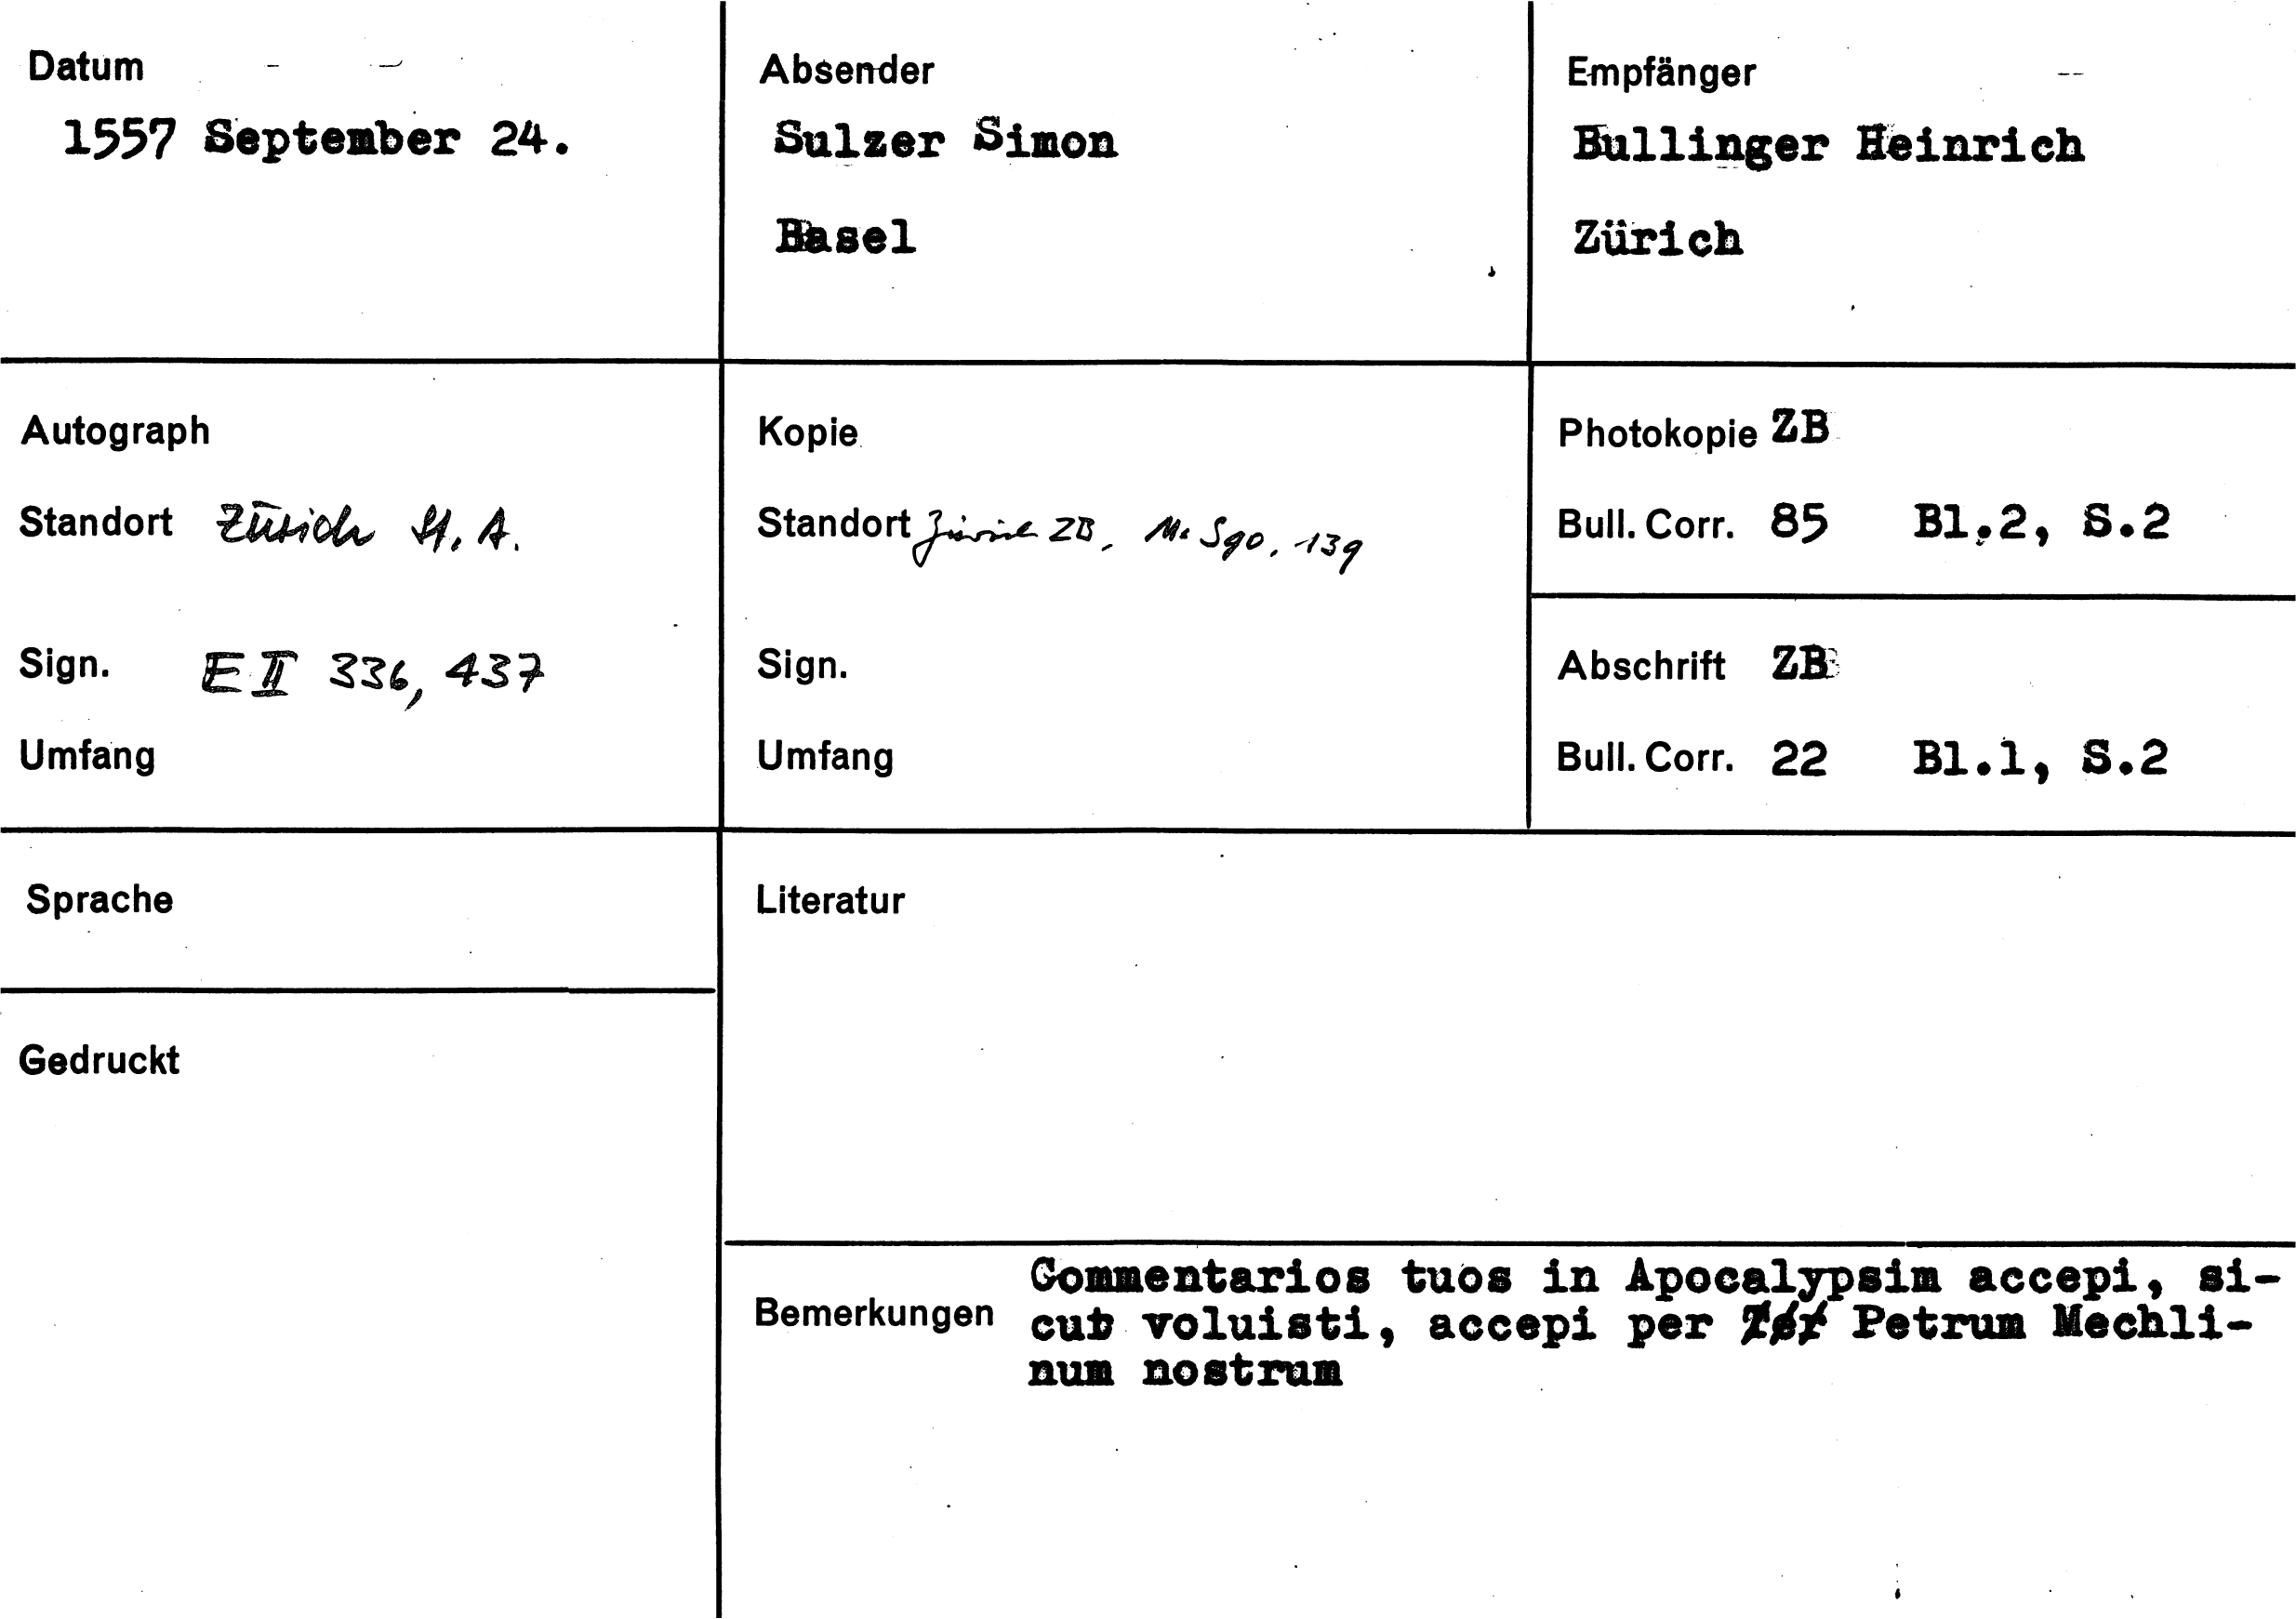 Datum
1557 September 24.
Absender
Sulzer Simon
Basel
Empfänger
Bullinger Heinrich
Zürich
Autograph
Standort Zürich St. A.
Sign. E II 336, 437
Umfang
Kopie
Standort Zürich ZB, Ms S 90, 139
Sign.
Umfang
Photokopie ZB
Bull. Corr. 85 Bl.2, S.2
Abschrift ZB
Bull. Corr. 22 Bl.1, S.2
Sprache
Gedruckt
Literatur
Bemerkungen
Commentarios tuos in Apocalypsim accepi, si-
cut voluisti, accepi per Petrum Mechli-
num nostrum